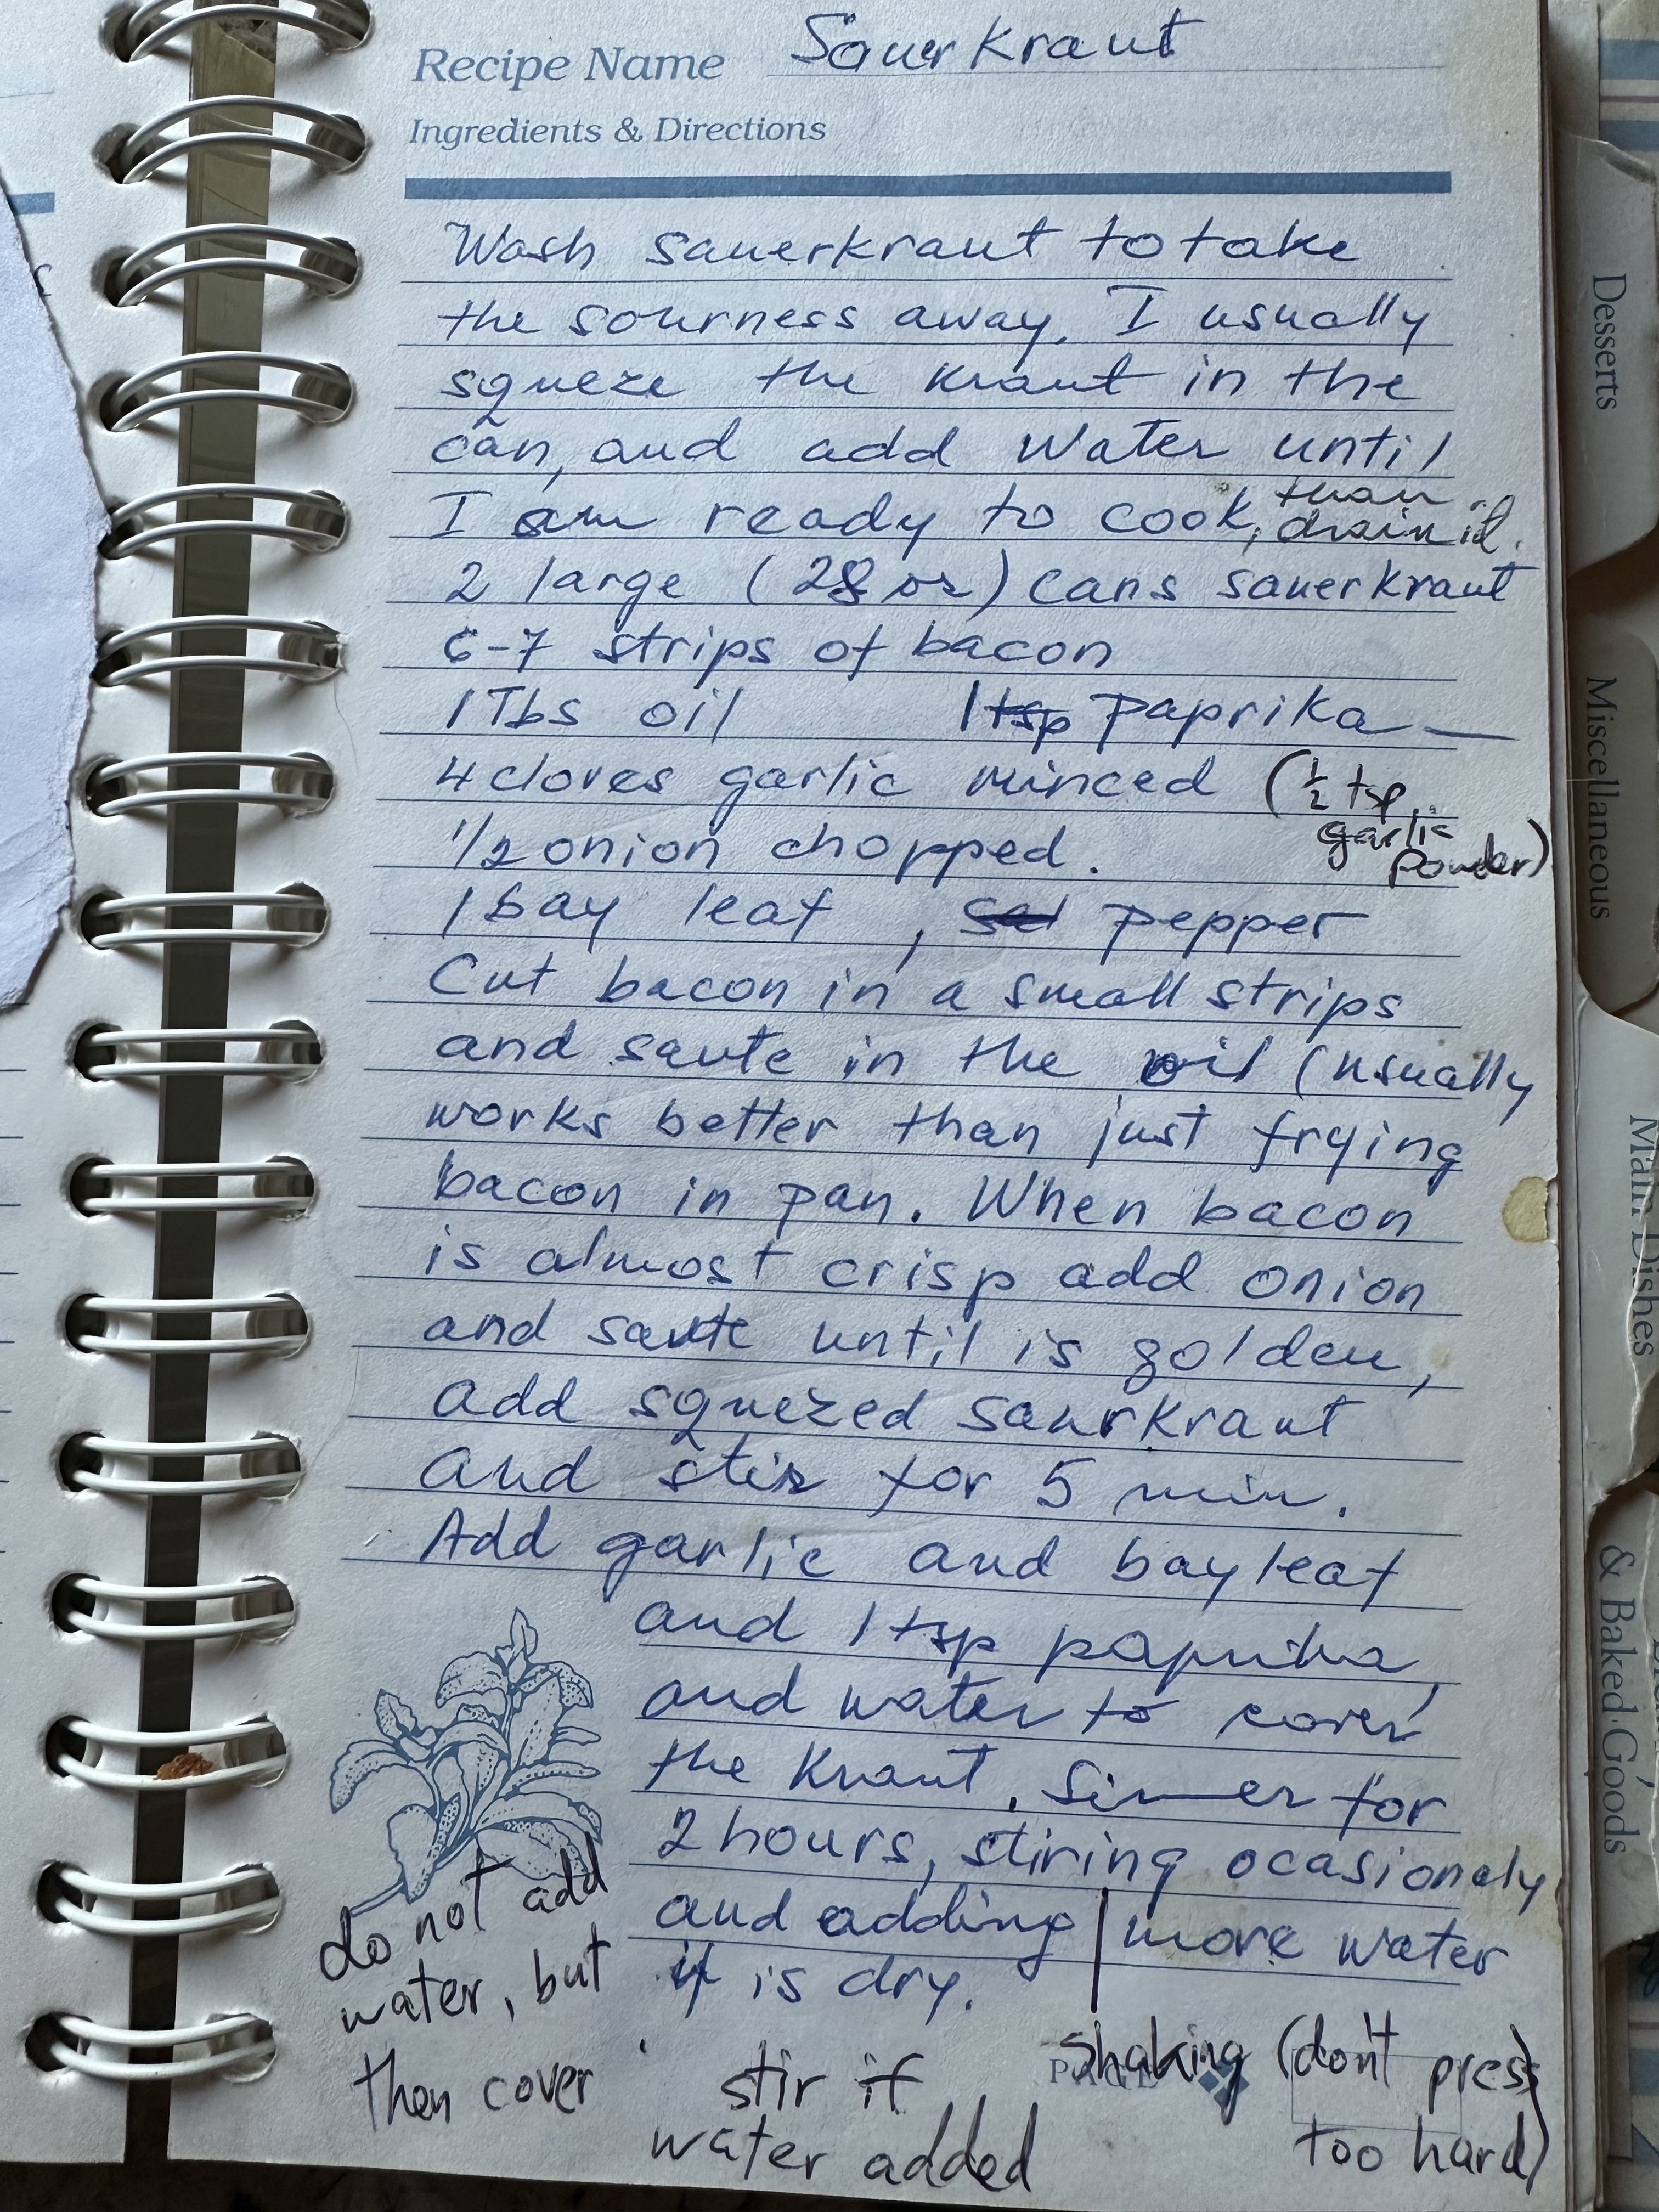 Recipe Name Sauerkraut
Ingredients & Directions
Wash sauerkraut to take
the sourness away. I usually
squeze the kraut in the
can, and add water until
I am ready to cook, than drain it.
2 large (28 oz) cans sauerkraut
6-7 strips of bacon
1 Tbs oil 1 tsp paprika
4 cloves garlic minced (1/2 tsp
garlic
powder)
1/2 onion chopped.
1 bay leaf, sal pepper
Cut bacon in a small strips
and saute in the oil (usually
works better than just frying
bacon in pan. When bacon
is almost crisp add onion
and saute until is golden,
add squezed saurkraut
and stir for 5 min.
Add garlic and bay leaf
and 1 tsp paprika
and water to cover
the kraut. Simer for
2 hours, stiring ocasionaly
and adding more water
if is dry.
do not add
water, but
then cover
stir if
water added
shaking (don't press
too hard)
PAGE
Desserts
Miscellaneous
Main Dishes
& Baked Goods